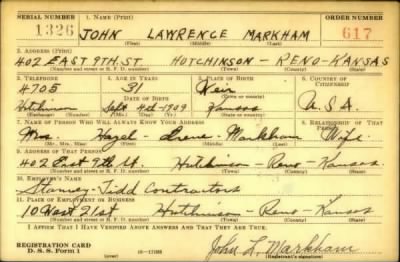 SERIAL NUMBER 1. NAME (Print) ORDER NUMBER
1326 JOHN LAWRENCE MARKHAM 617
(First) (Middle) (Last)
2. ADDRESS (Print)
402 EAST 9TH. ST HUTCHINSON - RENO - KANSAS
(Number and street or R. F. D. number) (Town) (County) (State)
3. TELEPHONE 4. AGE IN YEARS 5. PLACE OF BIRTH 6. COUNTRY OF CITIZENSHIP
4705 31 Weir
DATE OF BIRTH
Hutchinson Sept 4th-1909 Kansas U.S.A.
(Exchange) (Number) (Mo.) (Day) (Yr.) (State or country)
7. NAME OF PERSON WHO WILL ALWAYS KNOW YOUR ADDRESS 8. RELATIONSHIP OF THAT PERSON
Mrs. Hazel - Irene - Markham Wife.
(Mr., Mrs., Miss) (First) (Middle) (Last)
9. ADDRESS OF THAT PERSON
402 East 9th St. Hutchinson - Reno - Kansas.
(Number and street or R. F. D. number) (Town) (County) (State)
10. EMPLOYER'S NAME
Contractors
11. PLACE OF EMPLOYMENT OR BUSINESS
10 West 21st Hutchinson - Reno - Kansas
(Number and street or R. F. D. number) (Town) (County) (State)
I AFFIRM THAT I HAVE VERIFIED ABOVE ANSWERS AND THAT THEY ARE TRUE.
REGISTRATION CARD
D. S. S. Form 1 (over) John L. Markham
(Registrant's signature)